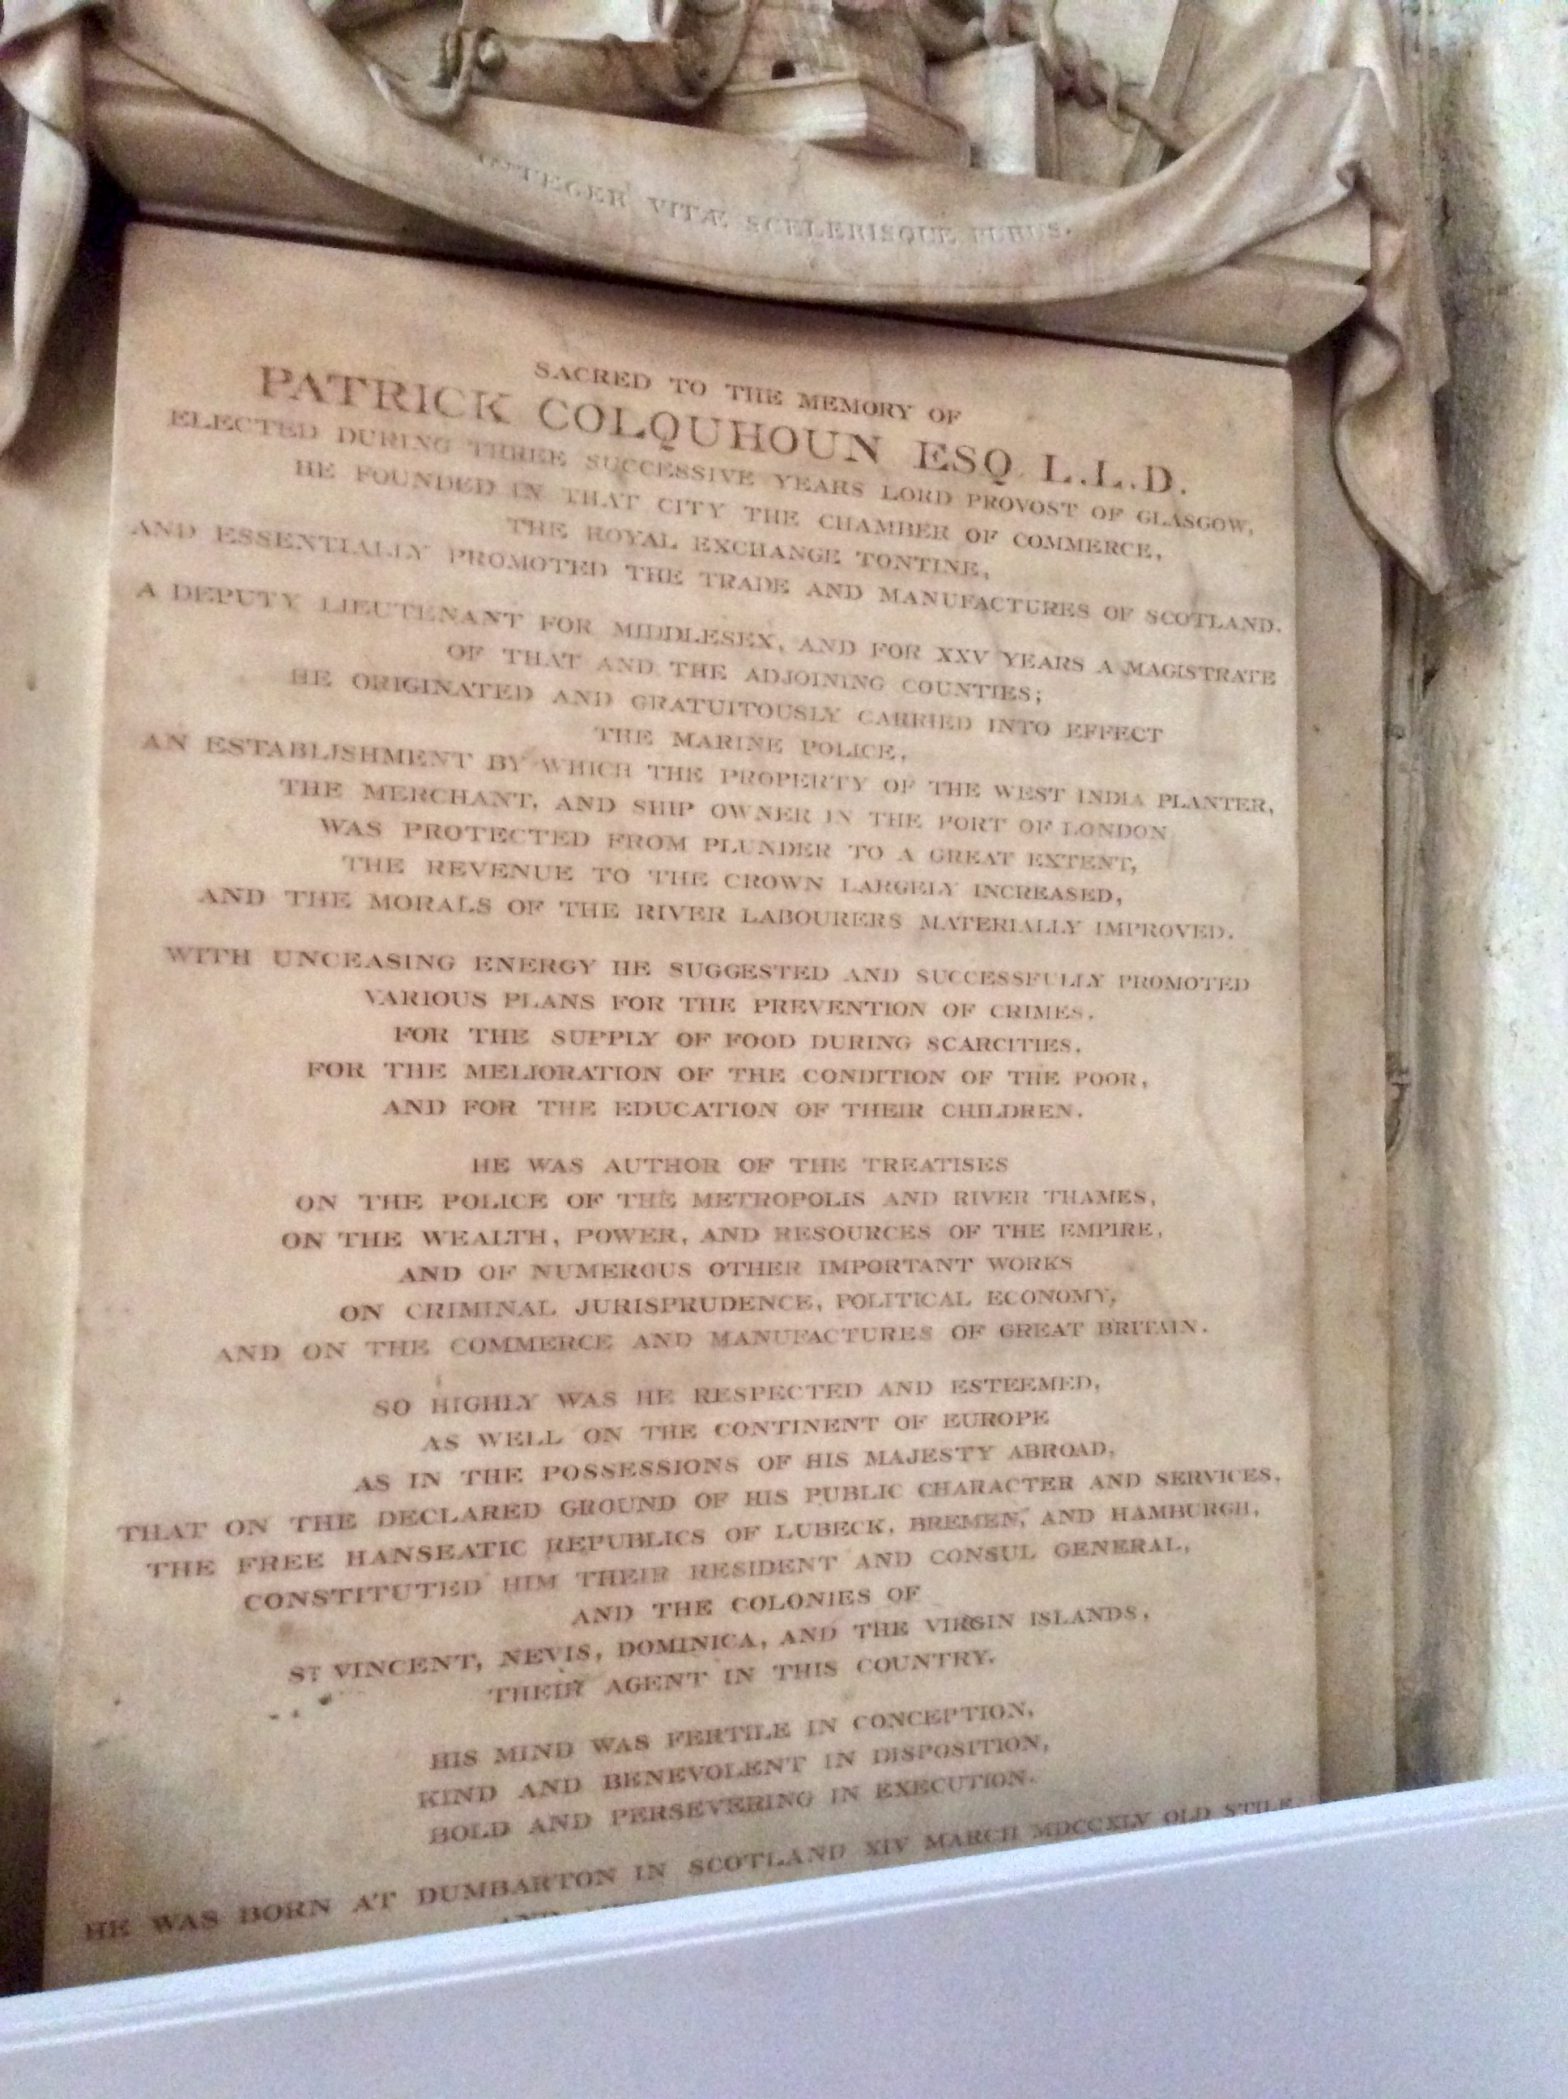 INTEGER VITÆ SCELERISQUE PURUS.
SACRED TO THE MEMORY OF
PATRICK COLQUHOUN ESQ. L.L.D.
ELECTED DURING THREE SUCCESSIVE YEARS LORD PROVOST OF GLASGOW,
HE FOUNDED IN THAT CITY THE CHAMBER OF COMMERCE,
THE ROYAL EXCHANGE TONTINE,
AND ESSENTIALLY PROMOTED THE TRADE AND MANUFACTURES OF SCOTLAND.
A DEPUTY LIEUTENANT FOR MIDDLESEX, AND FOR XXV YEARS A MAGISTRATE
OF THAT AND THE ADJOINING COUNTIES;
HE ORIGINATED AND GRATUITOUSLY CARRIED INTO EFFECT
THE MARINE POLICE,
AN ESTABLISHMENT BY WHICH THE PROPERTY OF THE WEST INDIA PLANTER,
THE MERCHANT, AND SHIP OWNER IN THE PORT OF LONDON
WAS PROTECTED FROM PLUNDER TO A GREAT EXTENT,
THE REVENUE TO THE CROWN LARGELY INCREASED,
AND THE MORALS OF THE RIVER LABOURERS MATERIALLY IMPROVED.
WITH UNCEASING ENERGY HE SUGGESTED AND SUCCESSFULLY PROMOTED
VARIOUS PLANS FOR THE PREVENTION OF CRIMES,
FOR THE SUPPLY OF FOOD DURING SCARCITIES,
FOR THE MELIORATION OF THE CONDITION OF THE POOR,
AND FOR THE EDUCATION OF THEIR CHILDREN.
HE WAS AUTHOR OF THE TREATISES
ON THE POLICE OF THE METROPOLIS AND RIVER THAMES,
ON THE WEALTH, POWER, AND RESOURCES OF THE EMPIRE,
AND OF NUMEROUS OTHER IMPORTANT WORKS
ON CRIMINAL JURISPRUDENCE, POLITICAL ECONOMY,
AND ON THE COMMERCE AND MANUFACTURES OF GREAT BRITAIN.
SO HIGHLY WAS HE RESPECTED AND ESTEEMED,
AS WELL ON THE CONTINENT OF EUROPE
AS IN THE POSSESSIONS OF HIS MAJESTY ABROAD,
THAT ON THE DECLARED GROUND OF HIS PUBLIC CHARACTER AND SERVICES,
THE FREE HANSEATIC REPUBLICS OF LUBECK, BREMEN, AND HAMBURGH,
CONSTITUTED HIM THEIR RESIDENT AND CONSUL GENERAL,
AND THE COLONIES OF
ST VINCENT, NEVIS, DOMINICA, AND THE VIRGIN ISLANDS,
THEIR AGENT IN THIS COUNTRY.
HIS MIND WAS FERTILE IN CONCEPTION,
KIND AND BENEVOLENT IN DISPOSITION,
BOLD AND PERSEVERING IN EXECUTION.
HE WAS BORN AT DUMBARTON IN SCOTLAND XIV MARCH MDCCXLV OLD STILE
AND